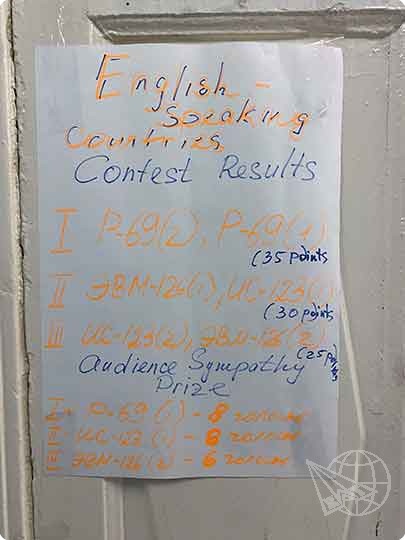 English -
Speaking
Countries
Contest Results
I P-69(2), P-69(1)
(35 points
II ЭВМ-126(1), ИС-123(1)
(30 points
III ИС-123(2), ЭВМ-126(2)
(25 points
Audience Sympathy
Prize
I P-69 (1) - 8 голосов
II ИС-123 (1) - 8 голосов
III ЭВМ-126(2) - 6 голосов